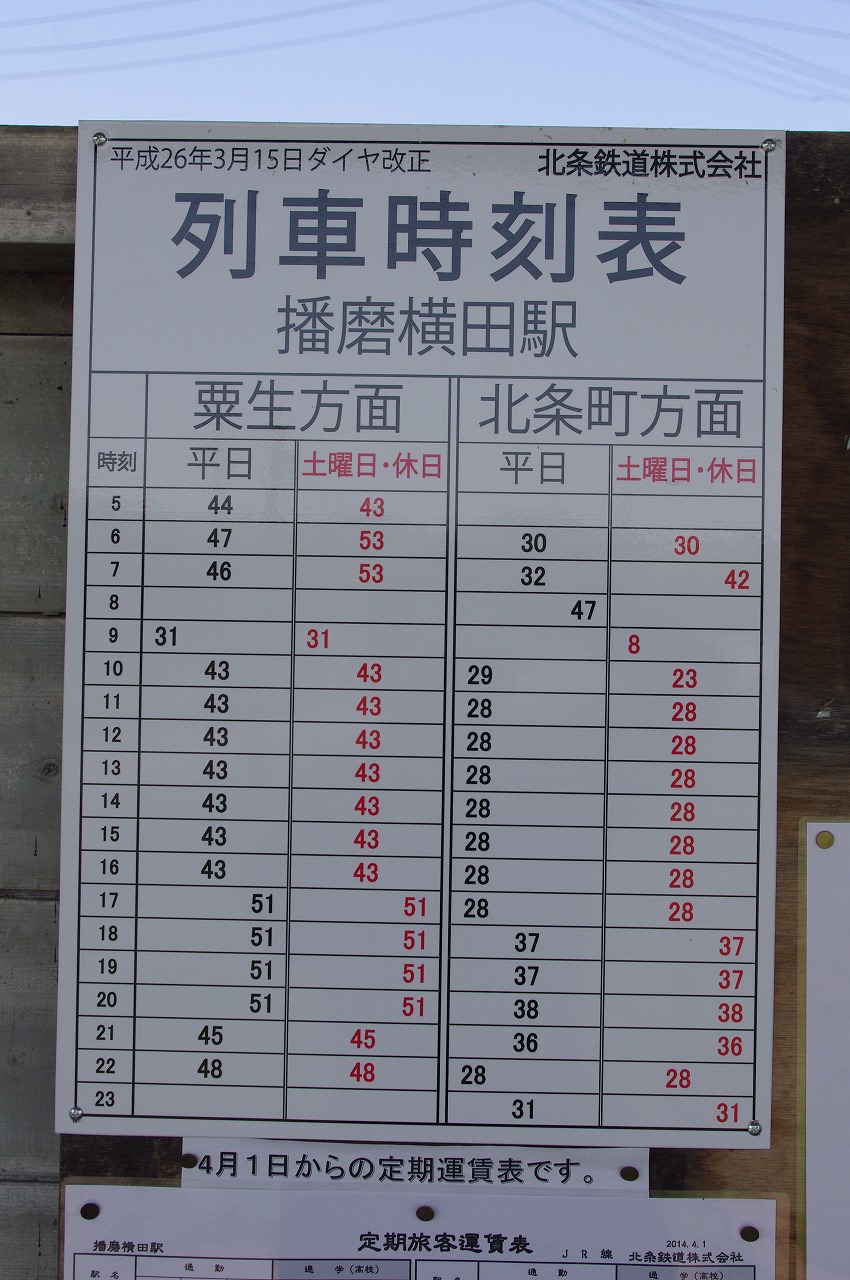 平成26年3月15日ダイヤ改正 北条鉄道株式会社
列車時刻表
播磨横田駅
粟生方面 北条町方面
時刻 平日 土曜日・休日 平日 土曜日・休日
5 44 43
6 47 53 30 30
7 46 53 32 42
8 47
9 31 31 8
10 43 43 29 23
11 43 43 28 28
12 43 43 28 28
13 43 43 28 28
14 43 43 28 28
15 43 43 28 28
16 43 43 28 28
17 51 51 28 28
18 51 51 37 37
19 51 51 37 37
20 51 51 38 38
21 45 45 36 36
22 48 48 28 28
23 31 31
4月1日からの定期運賃表です。
2014.4.1
播磨横田駅 定期旅客運賃表 JR線 北条鉄道株式会社
駅名 通勤 通学(高校) 駅名 通勤 通学(高校)